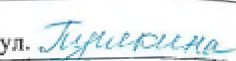 ул. Пушкина